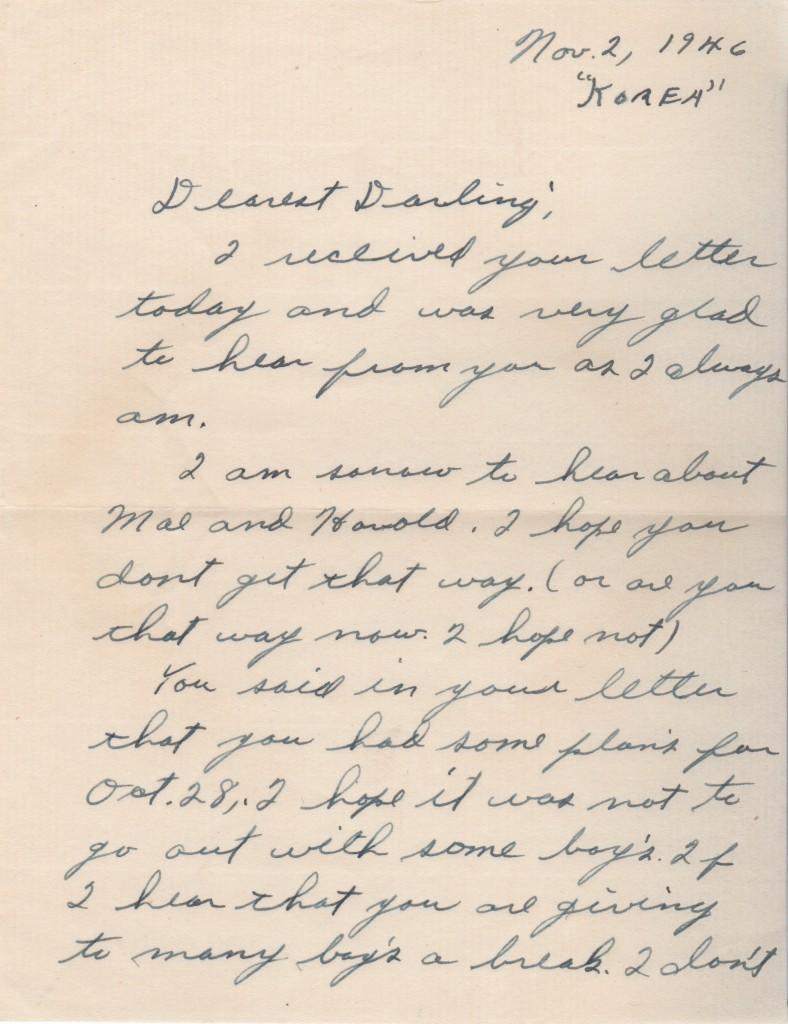 Nov. 2, 1946
"KOREA"
Dearest Darling',
I received your letter
today and was very glad
to hear from you as I always
am.
I am sorrow to hear about
Mae and Harold. I hope you
dont get that way. (or are you
that way now. I hope not)
You said in your letter
that you had some plan's for
Oct. 28,. I hope it was not to
go out with some boy's. If
I hear that you are giving
to many boy's a break. I don't